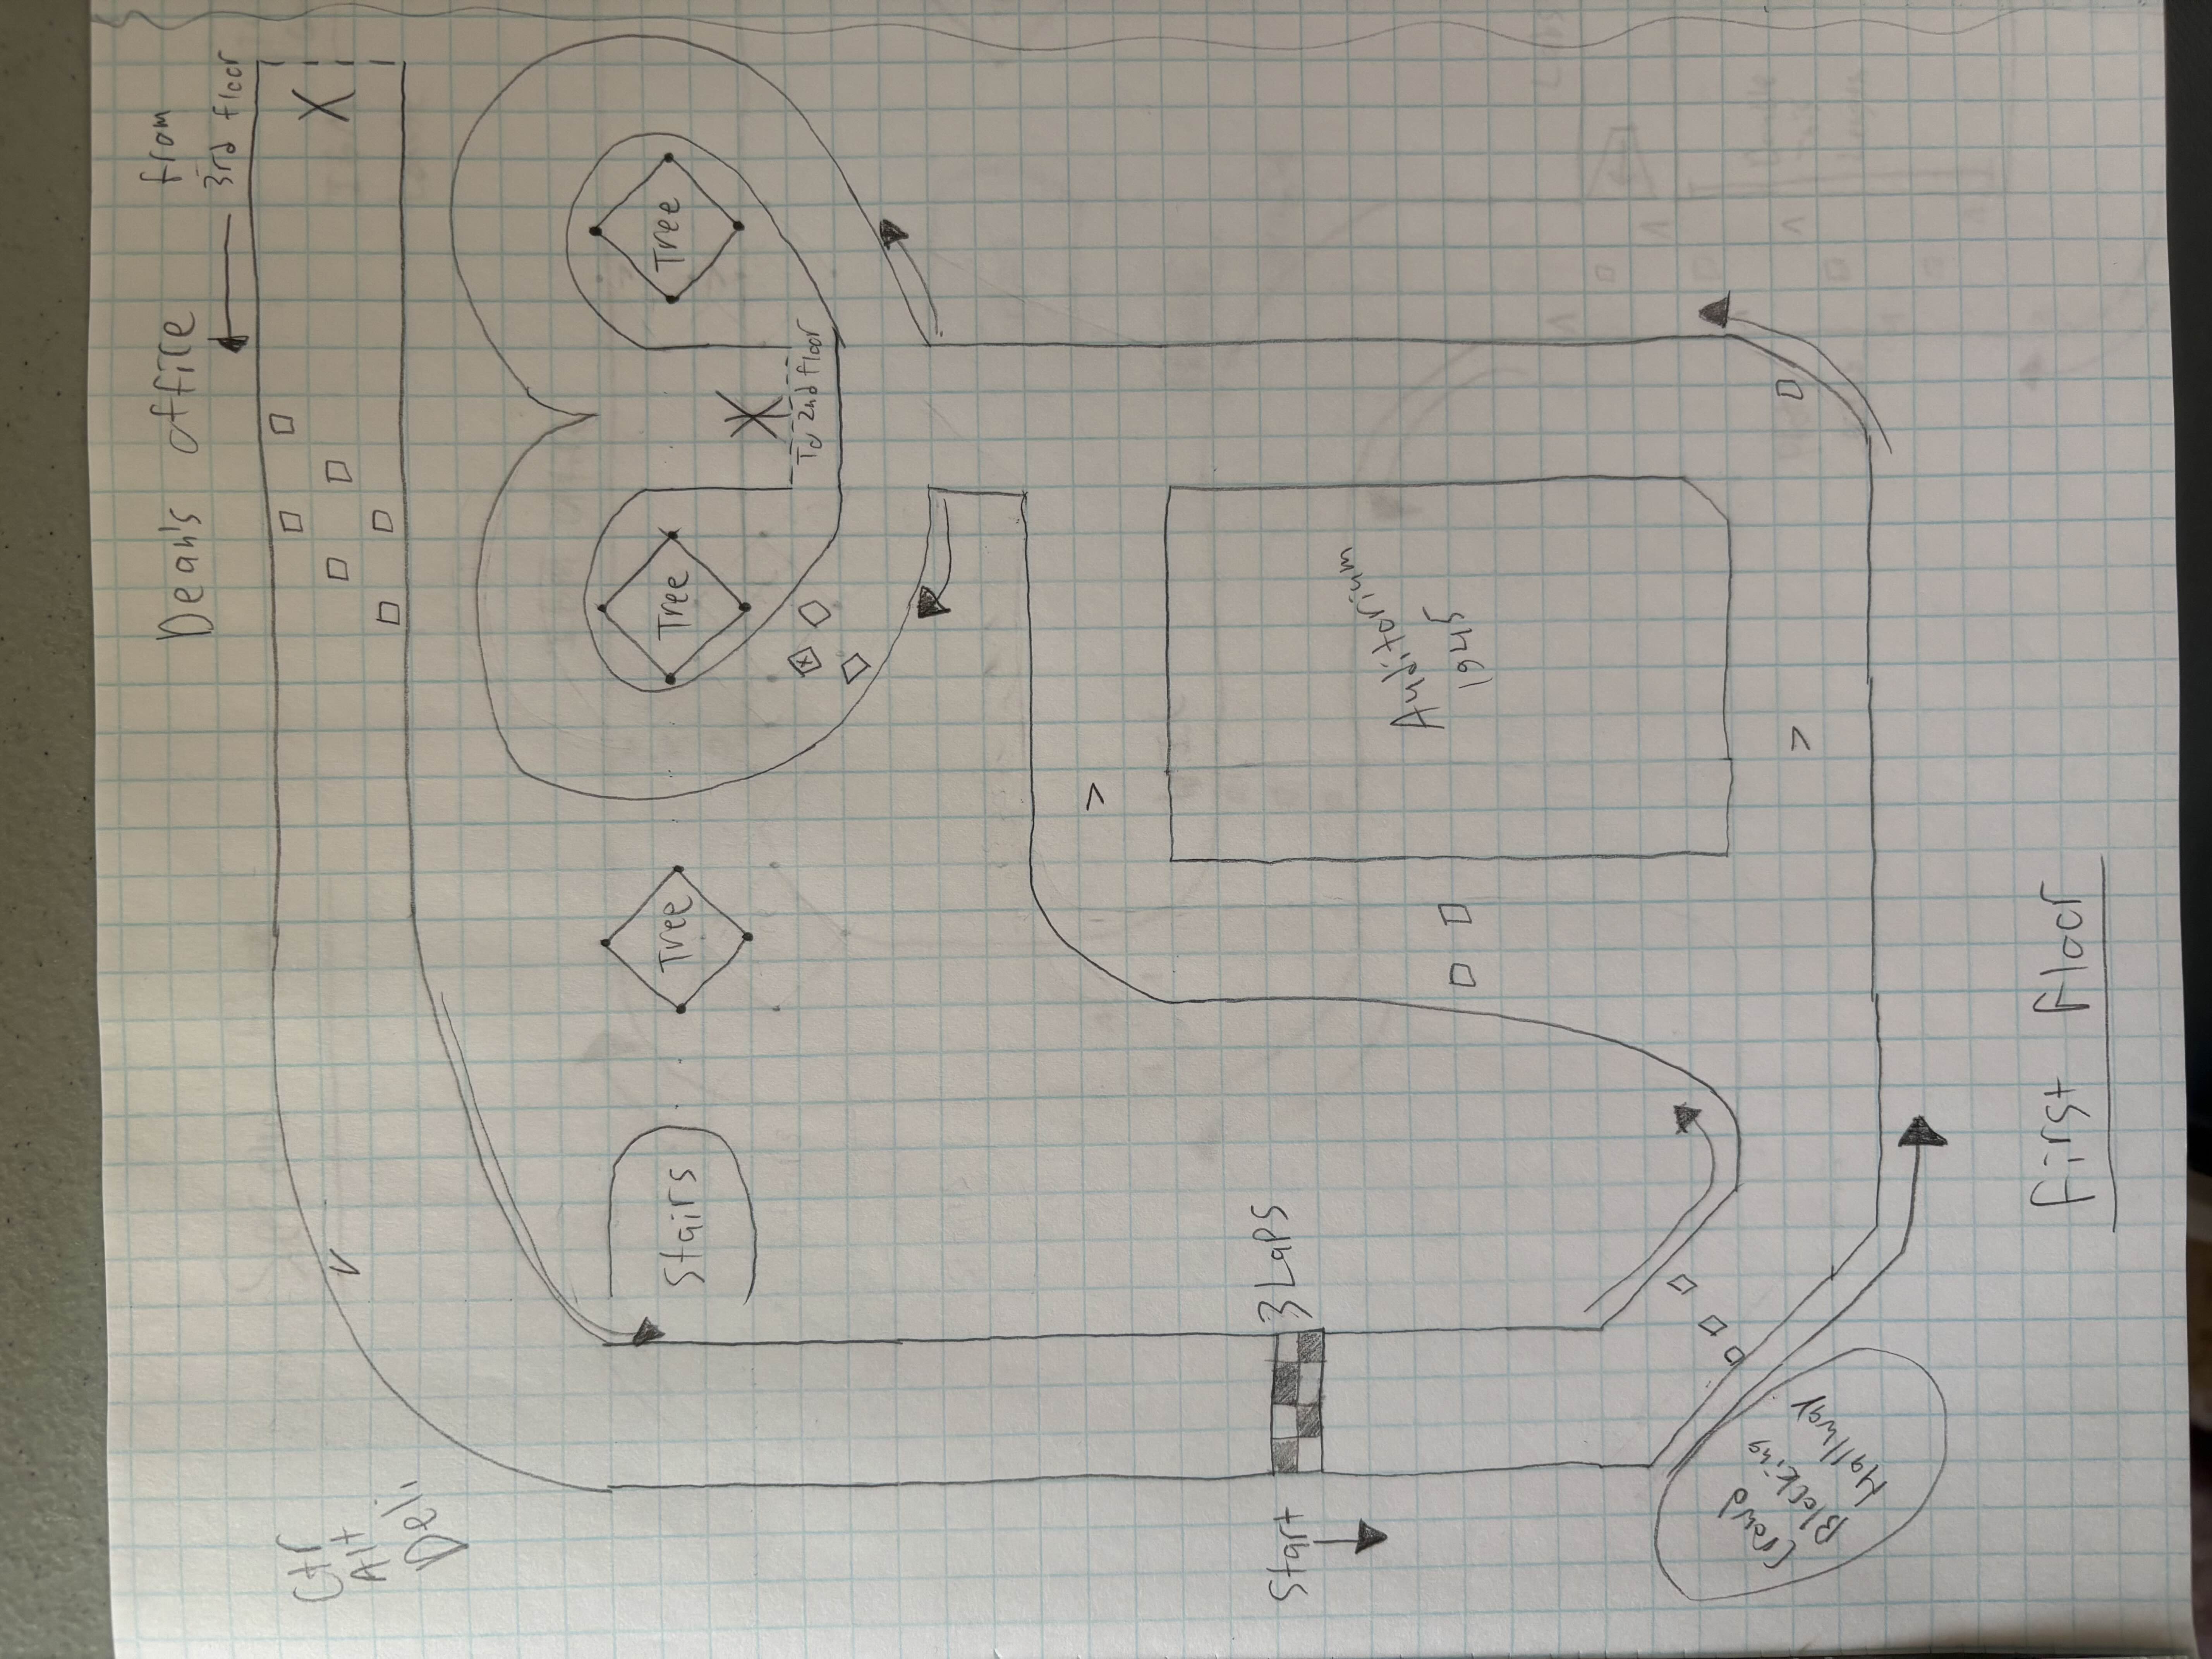 Dean's office
from
3rd floor
Ctr
Alt
Deli
X
Stairs
Tree
Tree
Tree
To 2nd floor
Start
3 Laps
Auditorium
1945
Crowd
Blocking
Hallway
First Floor